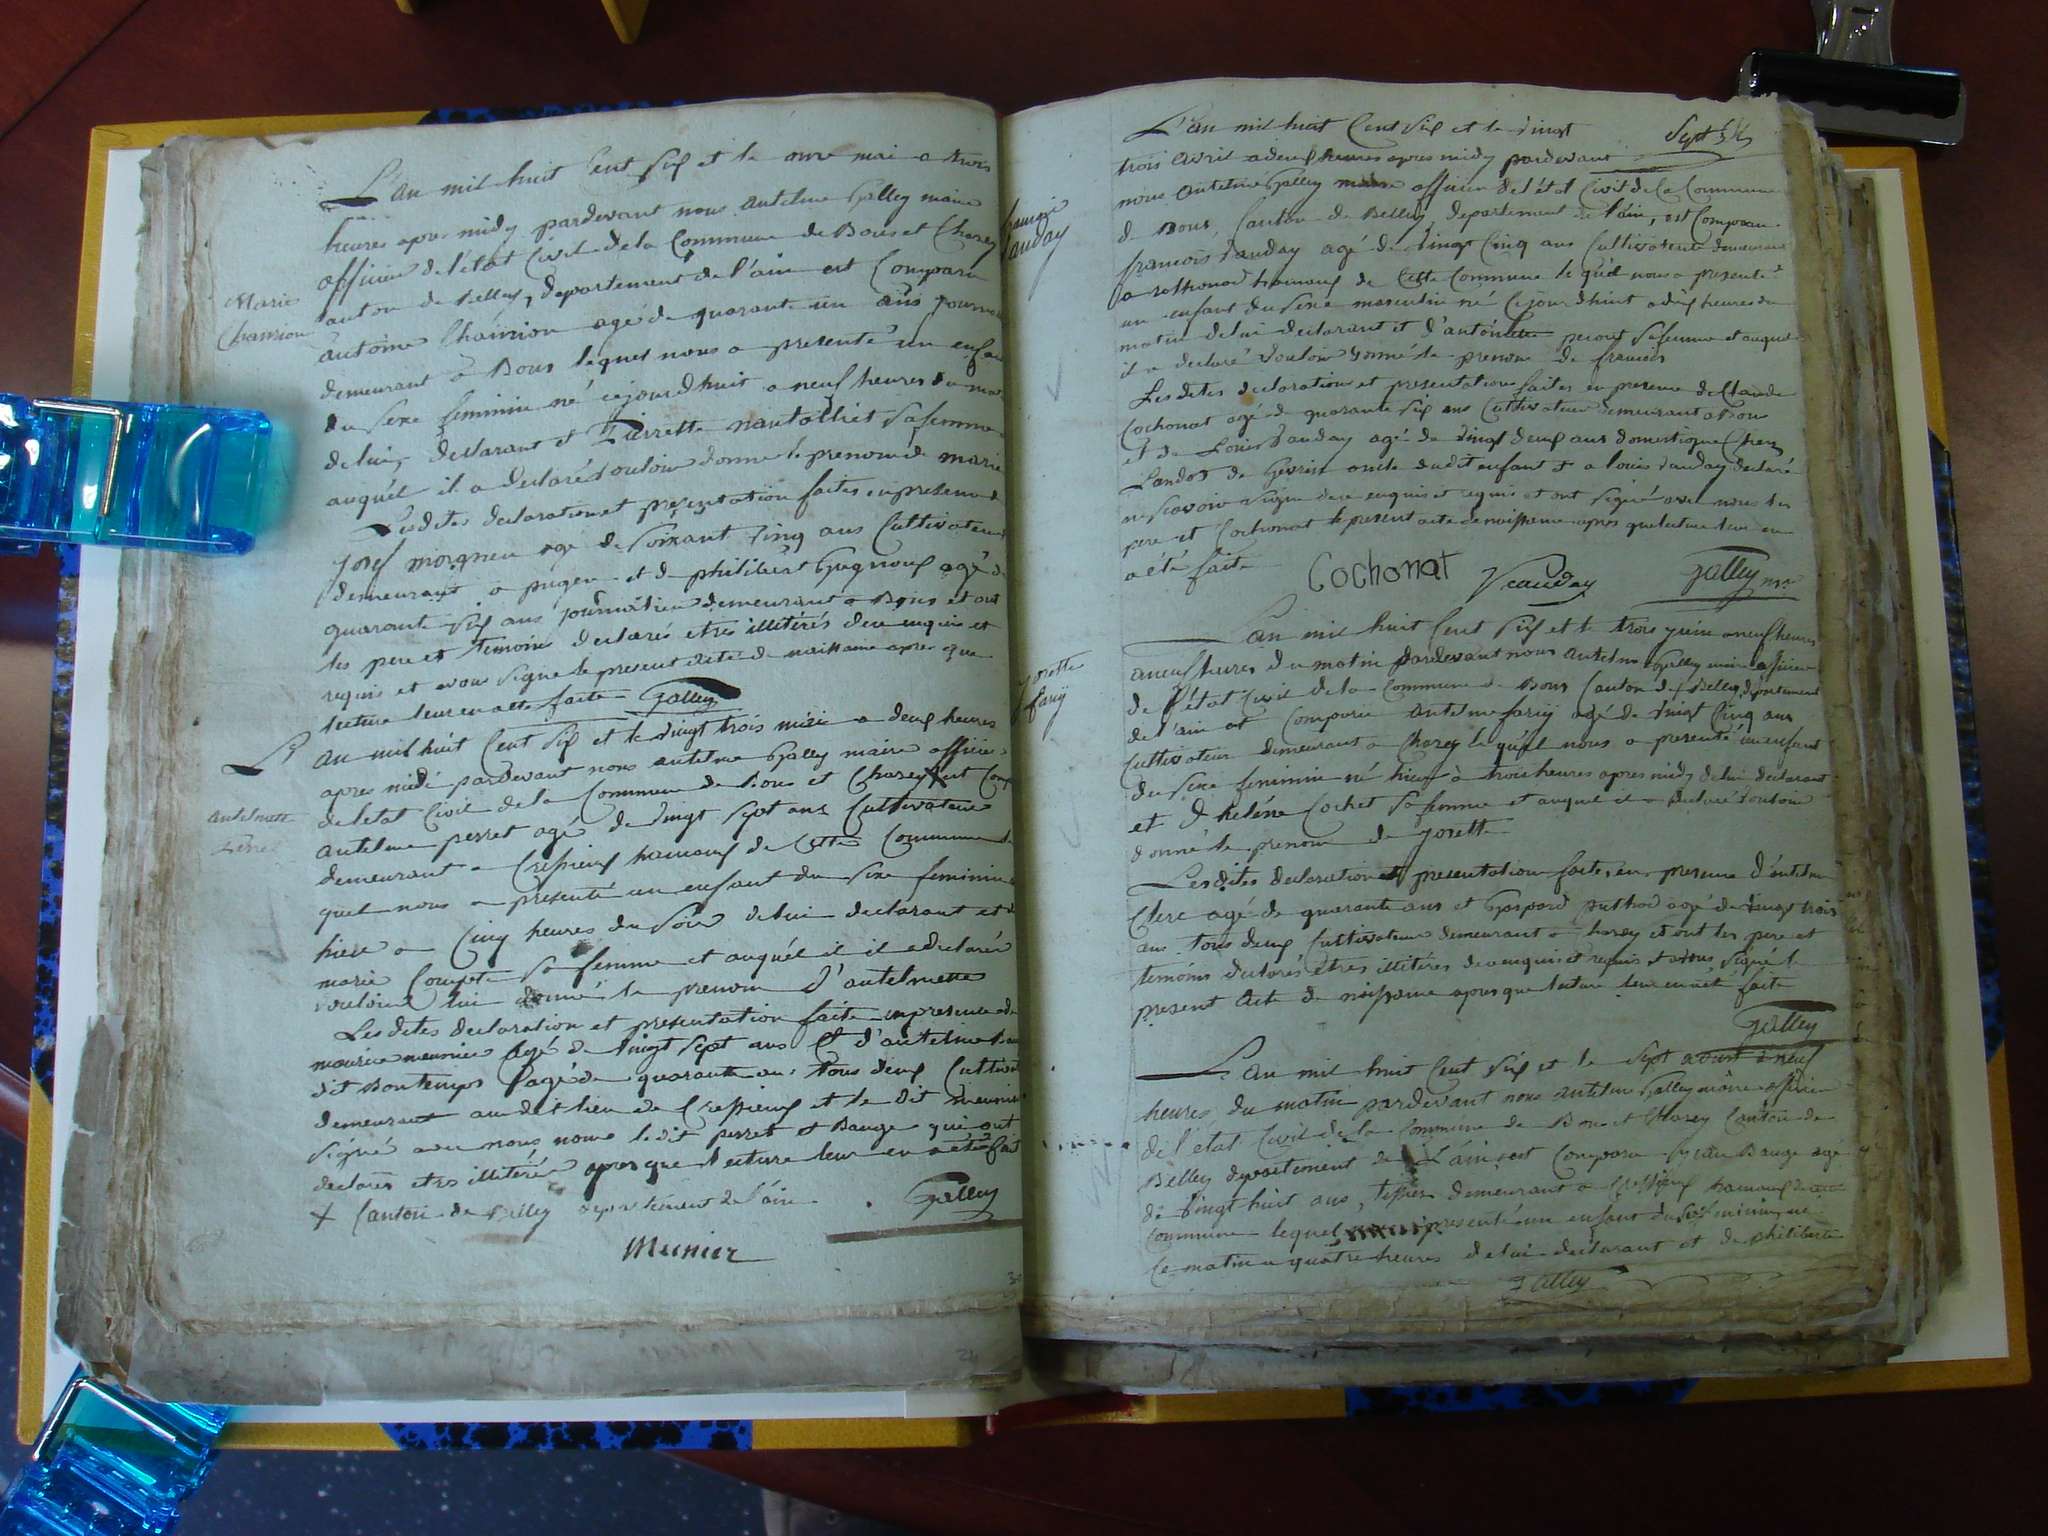 L'an mil huit Cent Six et le onze mai a trois
heures apres midy pardevant nous Antelme Galley maire
officier de l'état Civil de la Commune de Bons et Chazey
Marie
Chamion
canton de Belley, departement de l'ain est Comparu
antoine Chamion agé de quarante un ans journa
demeurant a Bons lequel nous a presenté un enfan
du sexe feminin né cejourdhuit a neuf heures du mat
de lui, declarant et Pierrette nantolliet sa femme
auquél il a declaré vouloir donné le prenom de marie
Lesdites declaration et presentation faites en presence de
josef morgneu agé de soixant Cinq ans Cultivateur
demeurant a pugeu et de philibert Gagnoux agé de
quarante Six ans journalier demeurant a Bons et ont
les pere et temoins declarés etres illitérés dece enquis et
requis et avons Signé le present acte de naissance apres que
lecture leur en atte faite Galley
L'an mil huit Cent Six et le vingt trois mai a deux heures
apres midi pardevant nous antelme Galley maire officier
de l'etat Civil de la Commune de Bons et Chazey X est Comp
Antelmette
Perret
antelme perret agé de vingt Sept ans Cultivateur
demeurant a Crepieux hameaux de Cette Commune le
quel nous a présenté un enfant du Sexe feminin
hier a Cinq heures du Soir de lui declarant et de
marie Compte sa femme et auquél il il a declaré
vouloir lui donné le prenom d'antelmette
Les dites declaration et presentation faite en presence de
maurice meunier agé de vingt Sept ans Et d'antelme Bau
dit Bontemps agé de quarante ans tous deux Cultivat
demeurant au dit lieu de Crepieux et le dit meunier
Signé avec nous, nome le dit perret et Bauge qui ont
declarés etres illitéré apres que lecture leur en a été fait
X Canton de Belley departement de l'ain Galley
Meunier
L'an mil huit Cent Six et le vingt
trois avril a deux heures apres midy pardevant
nous antelme Galley maire officier de l'état Civil de la Commune
francois
Vauday
de Bons, Canton de Belley, departement de l'ain, est Comparu
francois Vauday agé de vingt Cinq ans Cultivateur demeurant
a rothonod hameaux de Cette Commune le quél nous a presenté
un enfant du Sexe masculin né Cejourdhuit a dix heures du
matin de lui declarant et d'antoinette sa femme et auquel
il a declaré vouloir donné le prenom de francois
Les dites declaration et presentation faites en presence de Claude
Cochonat agé de quarante Six ans Cultivateur demeurant a Bons
et de Louis Vauday agé de vingt deux ans domestique Chez
Landos de oncle dudit enfant et a louis Vauday declaré
ne Scavoir Signe dece enquis et requis et ont Signé avec nous les
pere et Cochonat le present acte de naissance apres que lecture leur en
a été faite
Cochonat Vauday Galley mre
L'an mil huit Cent Six et le trois juin a neuf heures
a neuf heures du matin pardevant nous antelme Galley maire officier
josette
farix
de l'état Civil de la Commune de Bons Canton de Belley, departement
de l'ain est Comparu Antelme agé de vingt Cinq ans
Cultivateur demeurant a Chazey le quél nous a presenté un enfant
du Sexe feminin né hier à trois heures apres midy de lui declarant
et d'heléne Cochet Sa femme et auquel il a declaré vouloir
donné le prenom de josette
Les dites declaration et presentation faite, en presence d'antelme
Clerc agé de quarante ans et Gaspard puthod agé de vingt trois
ans tous deux Cultivateur demeurant a Chazey et ont les pere et
temoins declarés etres illitéres dece enquis et requis et avons Signé le
present Acte de naissance apres que lecture leur en a été faite
Galley
L'an mil huit Cent Six et le Sept avril a neuf
heures du matin pardevant nous antelme Galley maire officier
de l'état Civil de la Commune de Bons et Chazey Canton de
Belley departement de L'ain est Comparu Bauge agé
de vingt huit ans, tissier demeurant a Crepieux hameaux de cette
Commune lequel presenté un enfant du Sexe feminin, né
Ce matin a quatre heures de lui declarant et de philiberte
Galley